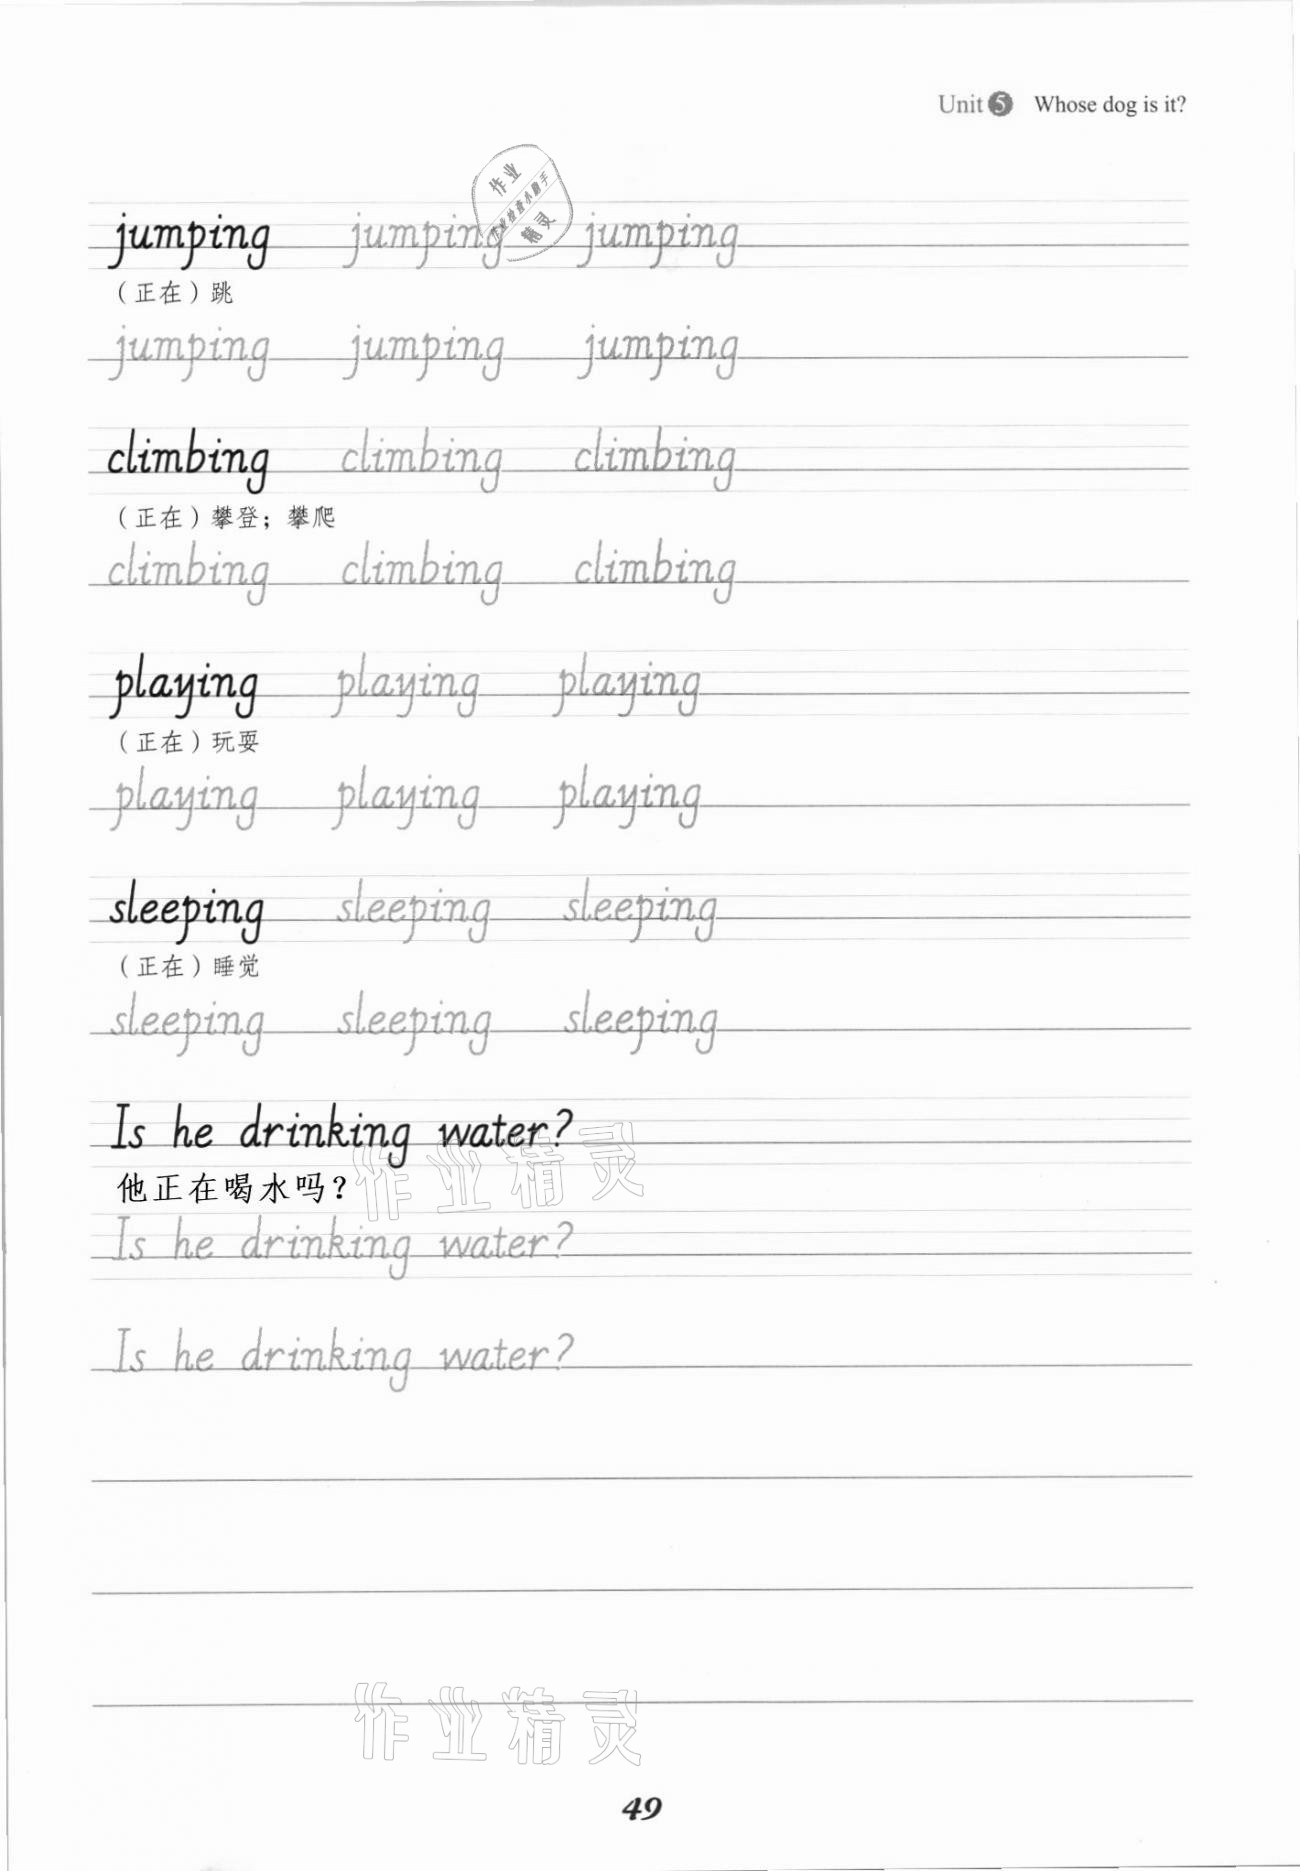 Unit 5 Whose dog is it?
作业
作业检查小助手
精灵
jumping jumping jumping
（正在）跳
jumping jumping jumping
climbing climbing climbing
（正在）攀登；攀爬
climbing climbing climbing
playing playing playing
（正在）玩耍
playing playing playing
sleeping sleeping sleeping
（正在）睡觉
sleeping sleeping sleeping
Is he drinking water?
作业精灵
他正在喝水吗？
Is he drinking water?
Is he drinking water?
作业精灵
49